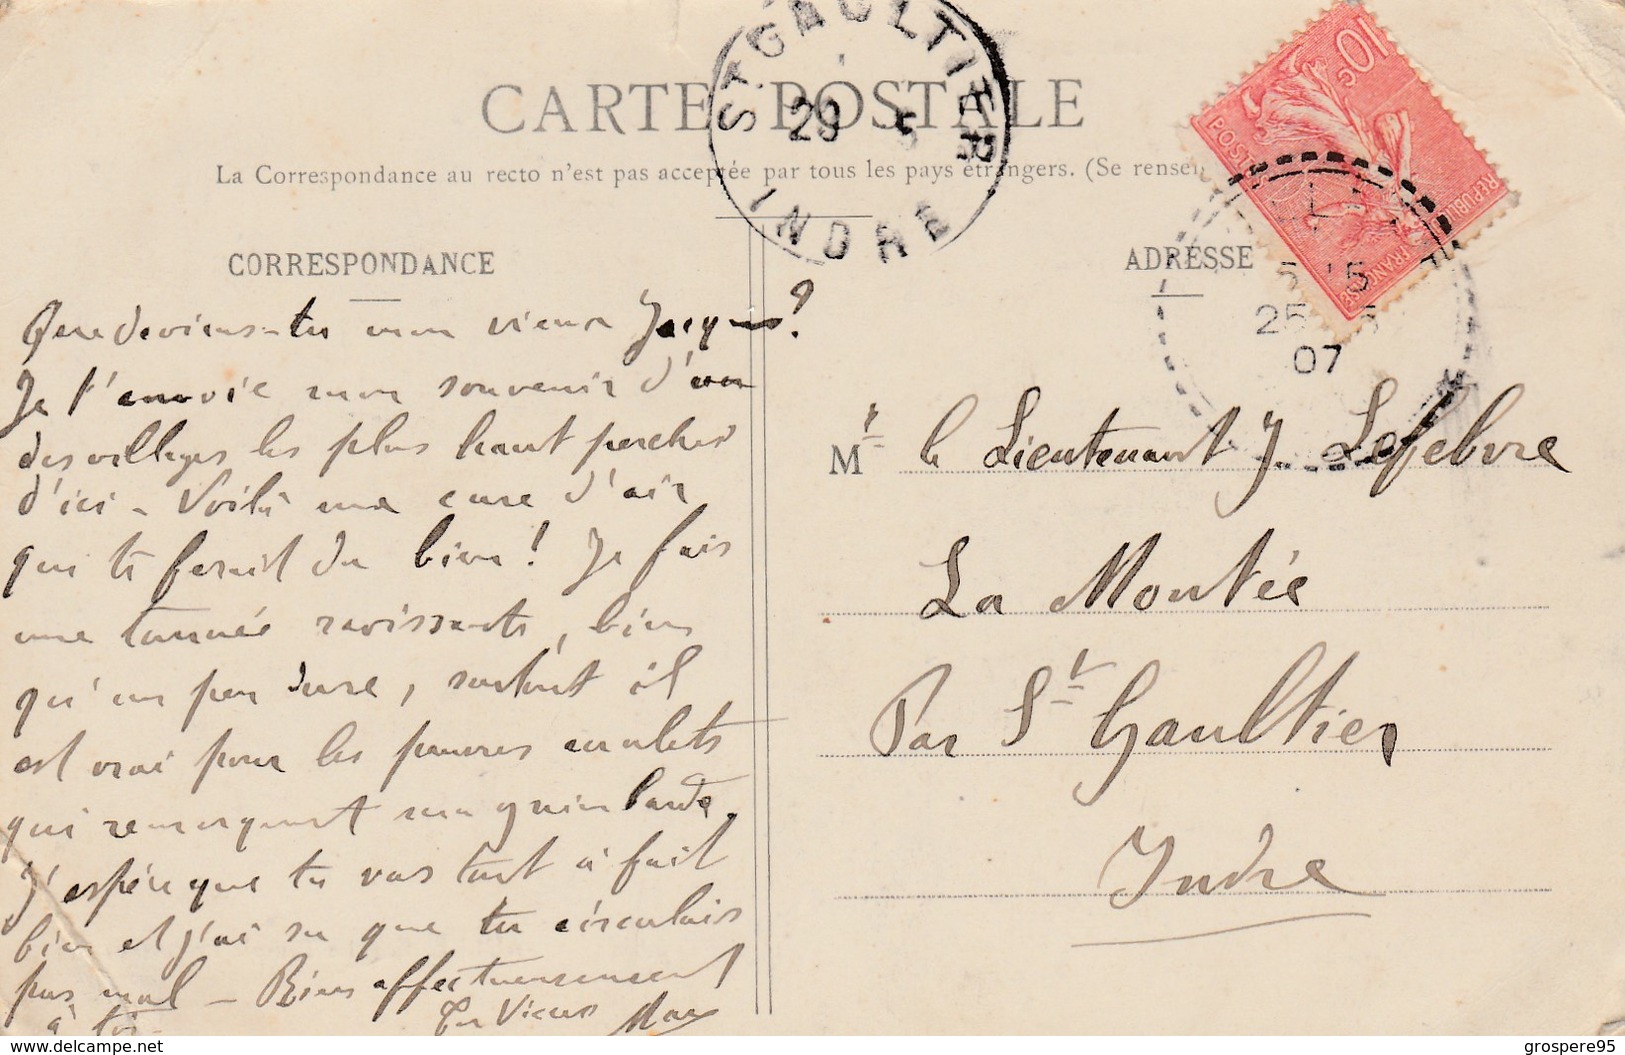 CARTE POSTALE
La Correspondance au recto n'est pas acceptée par tous les pays étrangers. (Se rensei
ST GAULTIER
29 5
INDRE
10 c
POSTES
REPUBLIQUE FRANCAISE
5 15
25 5
07
CORRESPONDANCE
Que deviens-tu mon vieux Jacques?
Je t'envoie mon souvenir d'un
des villages les plus haut perchés
d'ici - Voilà une cure d'air
qui te ferait du bien! Je fais
une tournée ravissante, bien
qu'un peu dure, surtout il
est vrai pour les pauvres mulets
qui remorquent ma guimbarde.
J'espère que tu vas tout à fait
bien et j'ai su que tu circulais
pas mal - Bien affectueusement
à toi
Ton Vieux Max
ADRESSE
Mr le Lieutenant J. Lefebvre
La Montée
Par St Gaultier
Indre
www.delcampe.net
grospere95